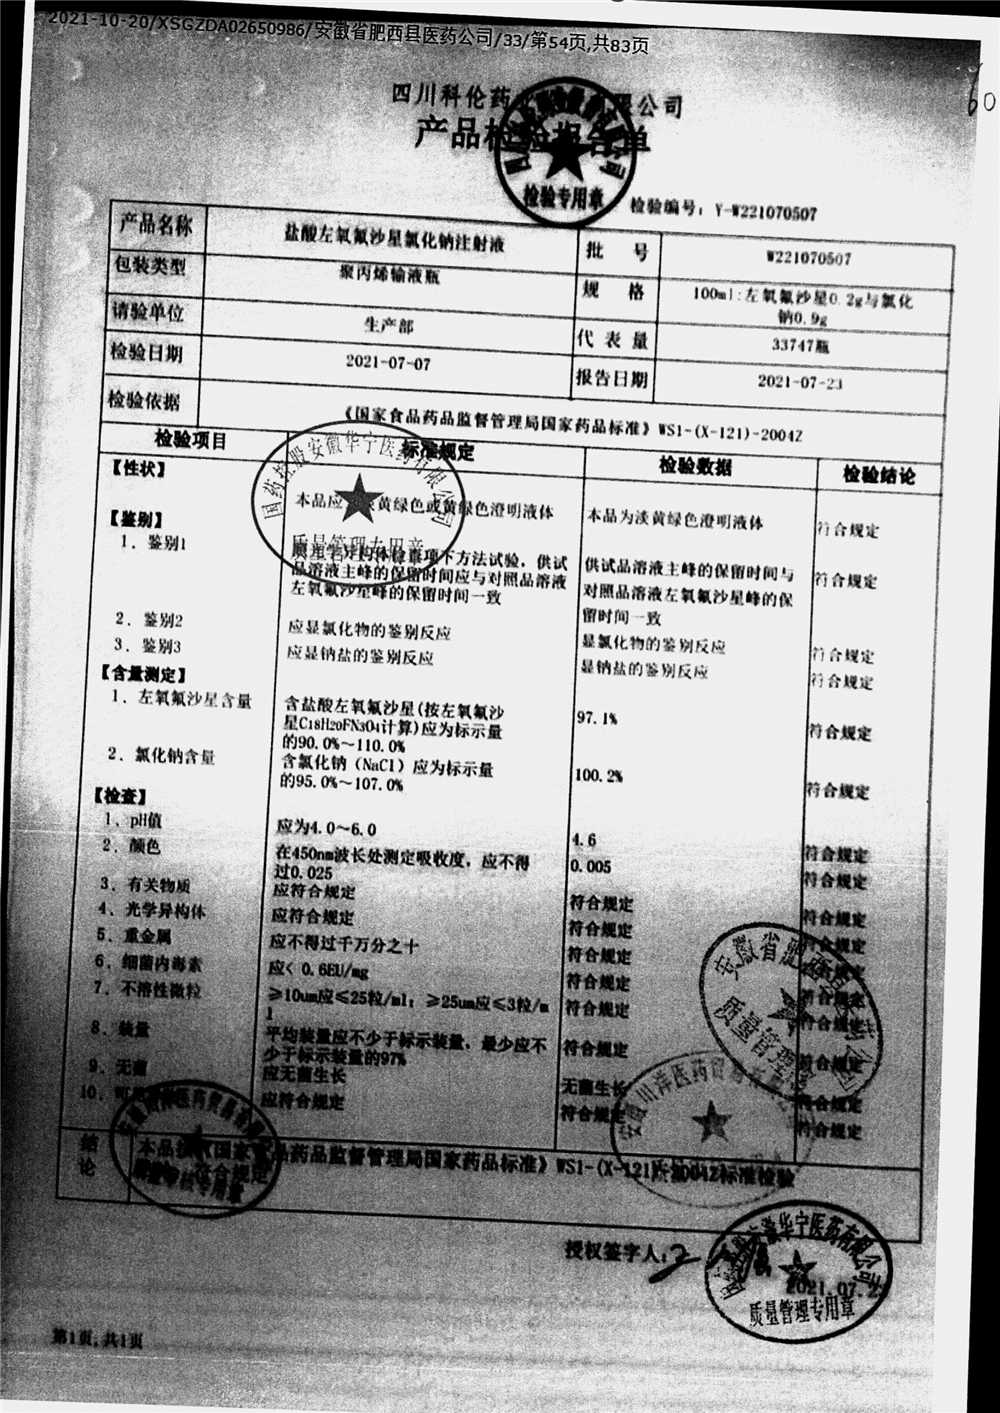 2021-10-20/XSGZDA02650986/安徽省肥西县医药公司/33/第54页,共83页
60
四川科伦药 限公司
产品检验报告单
检验专用章
检验编号：Y-W221070507
产品名称 盐酸左氧氟沙星氯化钠注射液 批 号 W221070507
包装类型 聚丙烯输液瓶 规 格 100ml:左氧氟沙星0.2g与氯化
钠0.9g
请验单位 生产部 代 表 量 33747瓶
检验日期 2021-07-07 报告日期 2021-07-23
检验依据 《国家食品药品监督管理局国家药品标准》WS1-(X-121)-2004Z
检验项目 标准规定 检验数据 检验结论
国药控股安徽华宁医药有限公司
质量管理专用章
【性状】 本品应 淡黄绿色或黄绿色澄明液体 本品为淡黄绿色澄明液体 符合规定
【鉴别】
1、鉴别1 照光学异构体检查项下方法试验，供试 供试品溶液主峰的保留时间与 符合规定
品溶液主峰的保留时间应与对照品溶液 对照品溶液左氧氟沙星峰的保
左氧氟沙星峰的保留时间一致 留时间一致
2、鉴别2 应显氯化物的鉴别反应 显氯化物的鉴别反应 符合规定
3、鉴别3 应显钠盐的鉴别反应 显钠盐的鉴别反应 符合规定
【含量测定】
1、左氧氟沙星含量 含盐酸左氧氟沙星(按左氧氟沙 97.1% 符合规定
星C18H20FN3O4计算)应为标示量
的90.0%～110.0%
2、氯化钠含量 含氯化钠（NaCl）应为标示量 100.2% 符合规定
的95.0%～107.0%
【检查】
1、pH值 应为4.0～6.0 4.6 符合规定
2、颜色 在450nm波长处测定吸收度，应不得 0.005 符合规定
过0.025
3、有关物质 应符合规定 符合规定 符合规定
4、光学异构体 应符合规定 符合规定 符合规定
5、重金属 应不得过千万分之十 符合规定 符合规定
6、细菌内毒素 应< 0.6EU/mg 符合规定 符合规定
7、不溶性微粒 ≥10um应≤25粒/ml；≥25um应≤3粒/m 符合规定 符合规定
l
8、装量 平均装量应不少于标示装量，最少应不 符合规定 符合规定
少于标示装量的97%
9、无菌 应无菌生长 无菌生长 符合规定
10、可见 应符合规定 符合规定 符合规定
安徽省肥西县医药公司
质量管理
安徽川洋医药贸易有限
结论 本品按《国家食品药品监督管理局国家药品标准》WS1-(X-121)-2004Z标准检验
符合规定
专用章
授权签字人：
2021.07.23
国药控股安徽华宁医药有限公司
质量管理专用章
第1页，共1页